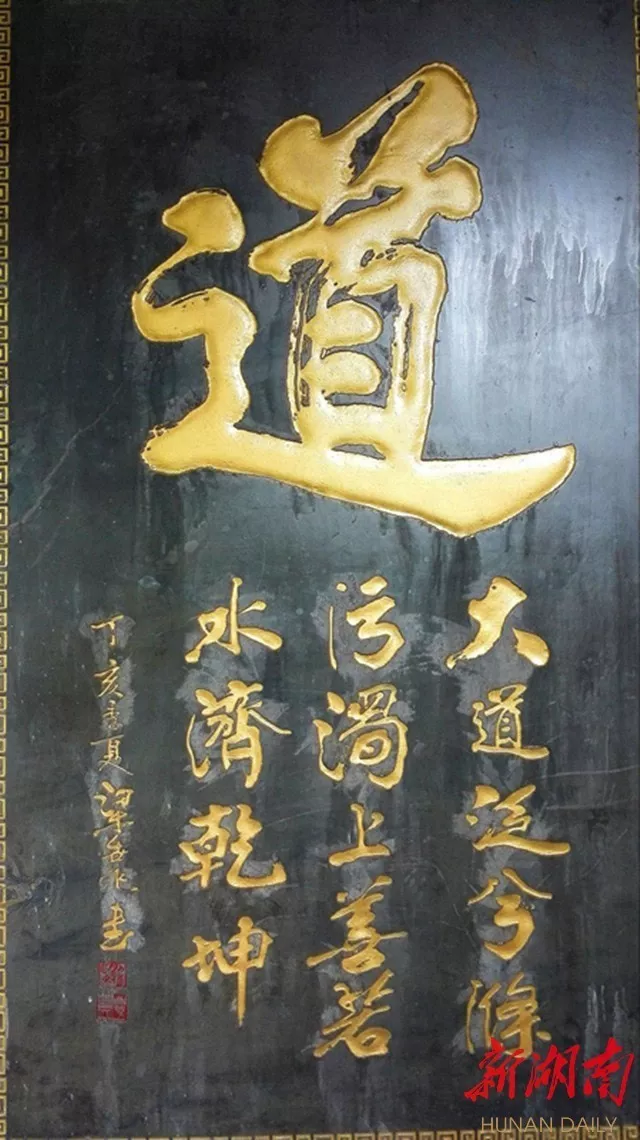 道
大道泛兮滌
污濁上善若
水濟乾坤
丁亥夏梁書
新湖南
HUNAN DAILY